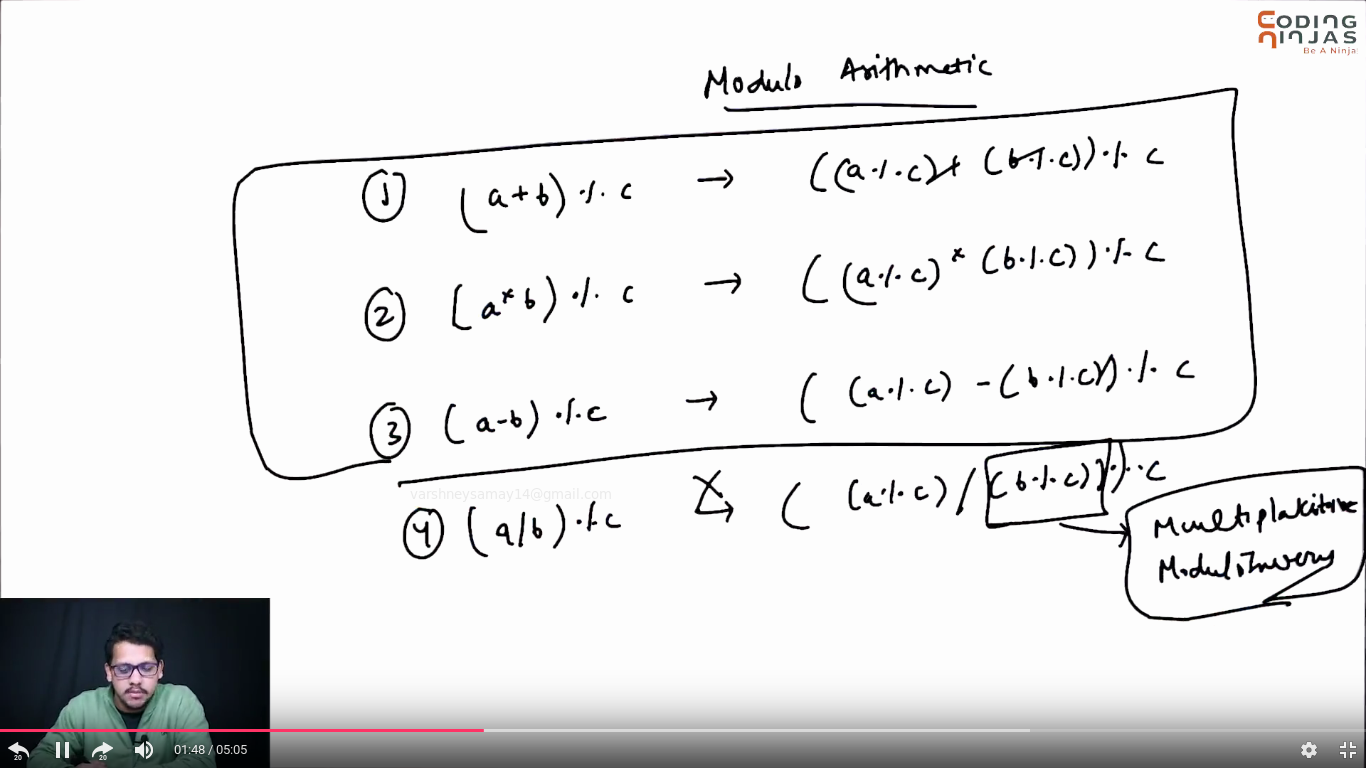 CODING
NINJAS
Be A Ninja
Modulo Arithmetic
① (a+b) % c → ((a % c) + (b % c)) % c
② (a * b) % c → ((a % c) * (b % c)) % c
③ (a-b) % c → ((a % c) - (b % c)) % c
varshneysamay14@gmail.com
④ (a/b) % c → ((a % c) / (b % c)) % c
Multiplakitive
Modulo Invers
20
20
01:48 / 05:05